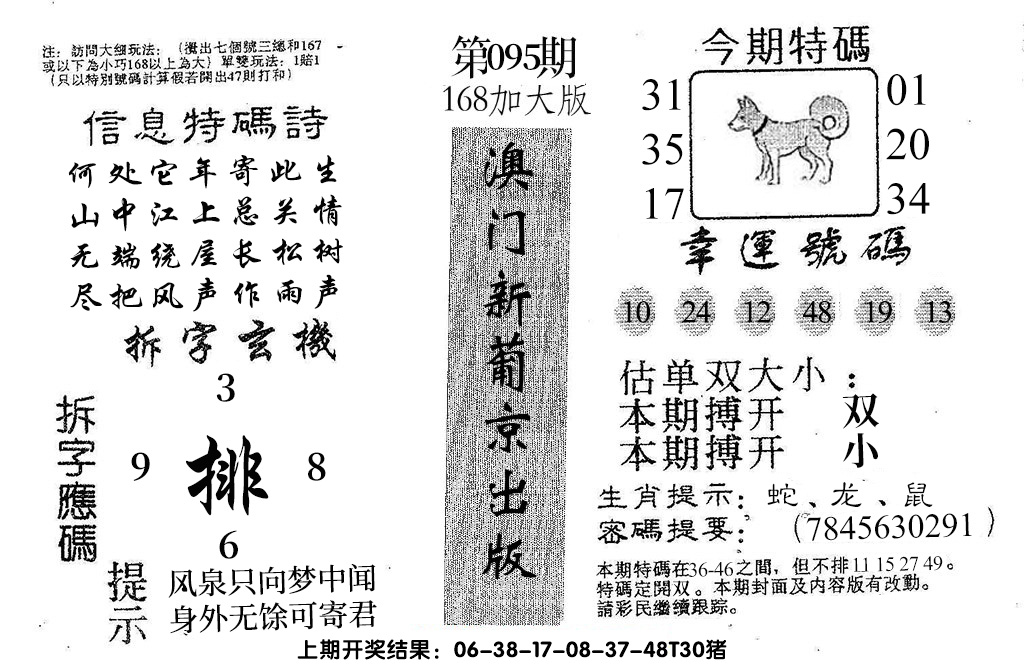 注：訪問大细玩法：（攪出七個號三總和167
或以下為小巧168以上為大）單雙玩法：1賠1
（只以特別號碼計算假若開出47則打和）
信息特碼詩
何处它年寄此生
山中江上总关情
无端绕屋长松树
尽把风声作雨声
拆字玄機
拆字應碼
3
9 排 8
6
提示
风泉只向梦中闻
身外无馀可寄君
第095期
168加大版
澳门新葡京出版
今期特碼
31 01
35 20
17 34
幸運號碼
10 24 12 48 19 13
估单双大小：
本期搏开 双
本期搏开 小
生肖提示：蛇、龙、鼠
密碼提要：（7845630291）
本期特碼在36-46之間，但不排11 15 27 49。
特碼定開双。本期封面及内容版有改動。
請彩民繼續跟踪。
上期开奖结果：06-38-17-08-37-48T30猪